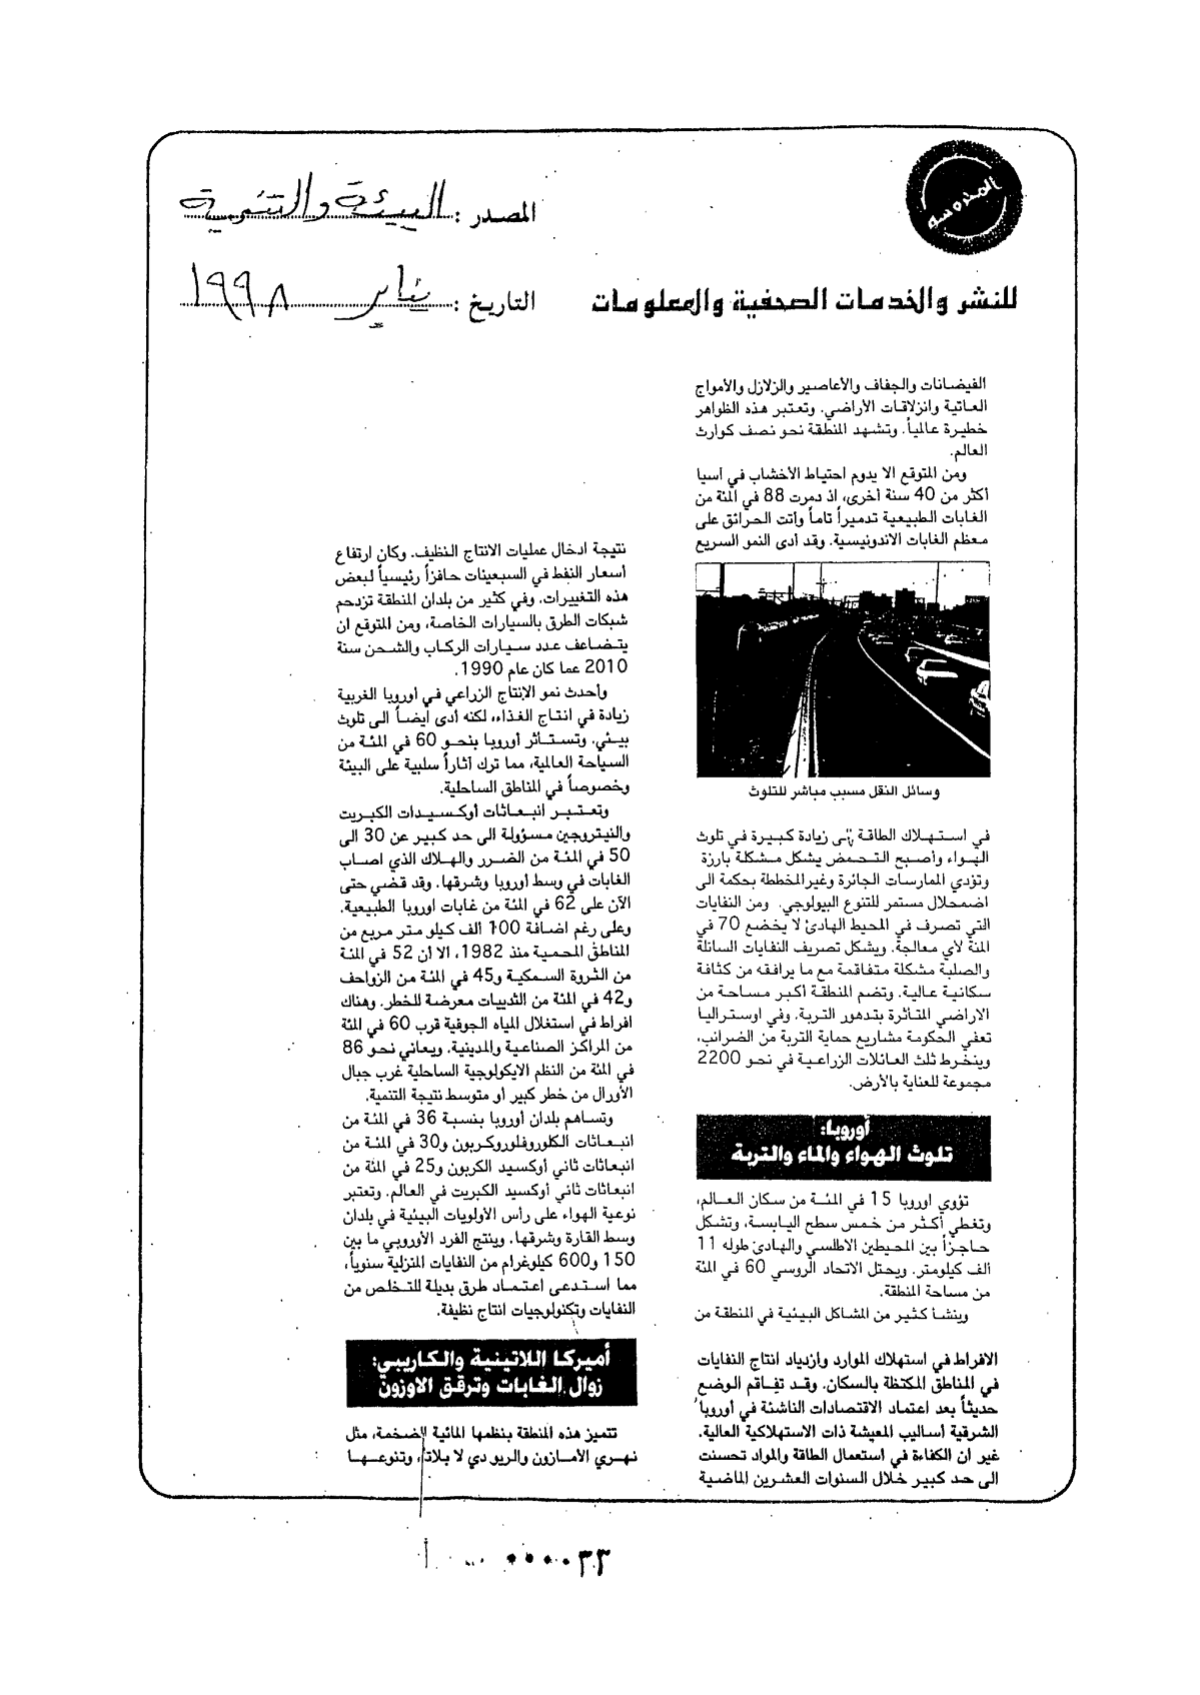 المدوسه
المصدر : البيئة والتنمية
للنشر والخدمات الصحفية والمعلومات
التاريخ : يناير ١٩٩٨
الفيضانات والجفاف والأعاصير والزلازل والأمواج
العاتية وانزلاقات الأراضي. وتعتبر هذه الظواهر
خطيرة عالمياً. وتشهد المنطقة نحو نصف كوارث
العالم.
ومن المتوقع الا يدوم احتياط الأخشاب في اسيا
أكثر من 40 سنة أخرى، اذ دمرت 88 في المئة من
الغابات الطبيعية تدميراً تاماً وأتت الحرائق على
معظم الغابات الاندونيسية. وقد أدى النمو السريع
وسائل النقل مسبب مباشر للتلوث
في استهلاك الطاقة إلى زيادة كبيرة في تلوث
الهواء وأصبح التحمض يشكل مشكلة بارزة
وتؤدي الممارسات الجائرة وغير المخططة بحكمة الى
اضمحلال مستمر للتنوع البيولوجي. ومن النفايات
التي تصرف في المحيط الهادئ لا يخضع 70 في
المئة لأي معالجة. ويشكل تصريف النفايات السائلة
والصلبة مشكلة متفاقمة مع ما يرافقه من كثافة
سكانية عالية. وتضم المنطقة أكبر مساحة من
الاراضي المتاثرة بتدهور التربة. وفي اوستراليا
تعفي الحكومة مشاريع حماية التربة من الضرائب،
وينخرط ثلث العائلات الزراعية في نحو 2200
مجموعة للعناية بالأرض.
أوروبا:
تلوث الهواء والماء والتربة
تؤوي اوروبا 15 في المئة من سكان العالم،
وتغطي أكثر من خمس سطح اليابسة، وتشكل
حاجزاً بين المحيطين الاطلسي والهادئ طوله 11
ألف كيلومتر. ويحتل الاتحاد الروسي 60 في المئة
من مساحة المنطقة.
وينشأ كثير من المشاكل البيئية في المنطقة من
الافراط في استهلاك الموارد وازدياد انتاج النفايات
في المناطق المكتظة بالسكان. وقد تفاقم الوضع
حديثاً بعد اعتماد الاقتصادات الناشئة في أوروبا
الشرقية أساليب المعيشة ذات الاستهلاكية العالية.
غير ان الكفاءة في استعمال الطاقة والمواد تحسنت
الى حد كبير خلال السنوات العشرين الماضية
نتيجة ادخال عمليات الانتاج النظيف. وكان ارتفاع
أسعار النفط في السبعينات حافزاً رئيسياً لبعض
هذه التغييرات. وفي كثير من بلدان المنطقة تزدحم
شبكات الطرق بالسيارات الخاصة، ومن المتوقع ان
يتضاعف عدد سيارات الركاب والشحن سنة
2010 عما كان عام 1990.
وأحدث نمو الإنتاج الزراعي في أوروبا الغربية
زيادة في انتاج الغذاء، لكنه أدى ايضاً الى تلوث
بيئي. وتستأثر أوروبا بنحو 60 في المئة من
السياحة العالمية، مما ترك آثاراً سلبية على البيئة
وخصوصاً في المناطق الساحلية.
وتعتبر انبعاثات أوكسيدات الكبريت
والنيتروجين مسؤولة الى حد كبير عن 30 الى
50 في المئة من الضرر والهلاك الذي اصاب
الغابات في وسط أوروبا وشرقها. وقد قضي حتى
الآن على 62 في المئة من غابات اوروبا الطبيعية.
وعلى رغم اضافة 100 الف كيلو متر مربع من
المناطق المحمية منذ 1982، الا أن 52 في المئة
من الثروة السمكية و45 في المئة من الزواحف
و42 في المئة من الثدييات معرضة للخطر. وهناك
افراط في استغلال المياه الجوفية قرب 60 في المئة
من المراكز الصناعية والمدينية. ويعاني نحو 86
في المئة من النظم الايكولوجية الساحلية غرب جبال
الأورال من خطر كبير أو متوسط نتيجة التنمية.
وتساهم بلدان أوروبا بنسبة 36 في المئة من
انبعاثات الكلوروفلوروكربون و30 في المئة من
انبعاثات ثاني أوكسيد الكربون و25 في المئة من
انبعاثات ثاني أوكسيد الكبريت في العالم. وتعتبر
نوعية الهواء على رأس الأولويات البيئية في بلدان
وسط القارة وشرقها. وينتج الفرد الأوروبي ما بين
150 و600 كيلوغرام من النفايات المنزلية سنوياً،
مما استدعى اعتماد طرق بديلة للتخلص من
النفايات وتكنولوجيات انتاج نظيفة.
أميركا اللاتينية والكاريبي:
زوال الغابات وترقق الاوزون
تتميز هذه المنطقة بنظمها المائية الضخمة، مثل
نهري الأمازون والريو دي لا بلاتا، وتنوعها